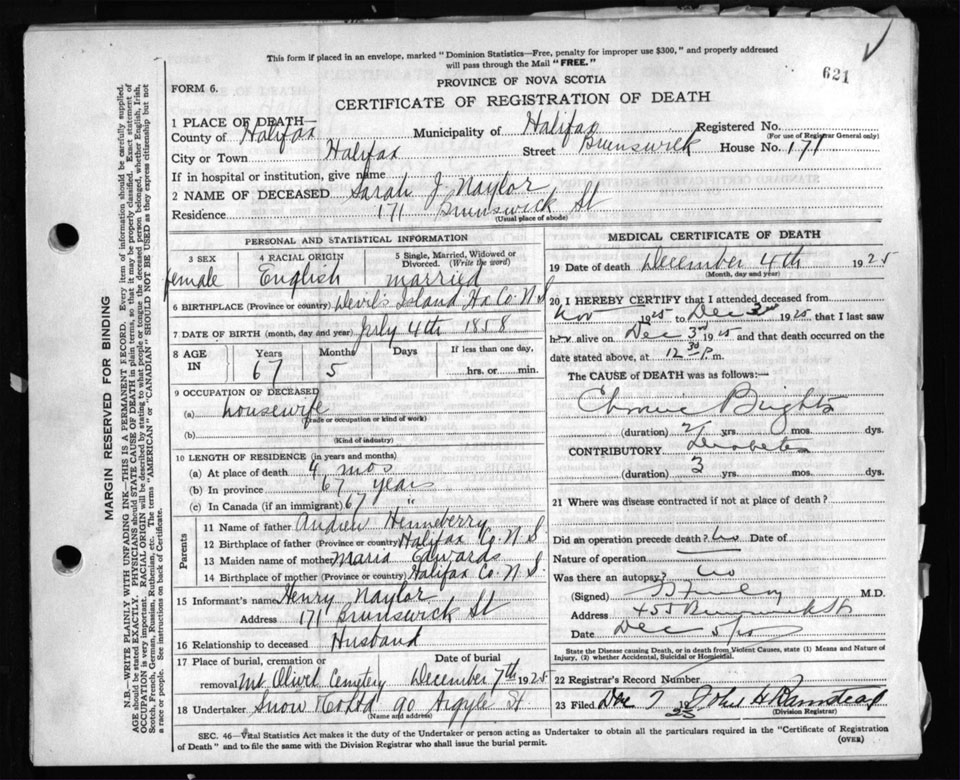 This form if placed in an envelope, marked "Dominion Statistics—Free, penalty for improper use $300," and properly addressed
will pass through the Mail "FREE."
621
PROVINCE OF NOVA SCOTIA
FORM 6.
CERTIFICATE OF REGISTRATION OF DEATH
1 PLACE OF DEATH—
County of Halifax Municipality of Halifax Registered No.
(For use of Registrar General only)
City or Town Halifax Street Brunswick House No. 171
If in hospital or institution, give name
2 NAME OF DECEASED Sarah J Naylor
Residence 171 Brunswick St
(Usual place of abode)
PERSONAL AND STATISTICAL INFORMATION
3 SEX 4 RACIAL ORIGIN 5 Single, Married, Widowed or
Divorced. (Write the word)
female English married
6 BIRTHPLACE (Province or country) Devil's Island Hx Co. N S
7 DATE OF BIRTH (month, day and year) July 4th 1858
8 AGE IN Years Months Days If less than one day,
67 5 hrs. or min.
9 OCCUPATION OF DECEASED
(a) housewife
(Trade or occupation or kind of work)
(b)
(Kind of industry)
10 LENGTH OF RESIDENCE (in years and months)
(a) At place of death 4 mos
(b) In province 67 years
(c) In Canada (if an immigrant) 67 "
Parents
11 Name of father Andrew Henneberry
12 Birthplace of father (Province or country) Halifax Co. N S
13 Maiden name of mother Maria Edwards
14 Birthplace of mother (Province or country) Halifax Co. N. S.
15 Informant's name Henry Naylor
Address 171 Brunswick St
16 Relationship to deceased Husband
17 Place of burial, cremation or Date of burial
removal Mt Olivet Cemetery December 7th 1925
18 Undertaker Snow & Co Ltd 90 Argyle St
(Name and address)
MEDICAL CERTIFICATE OF DEATH
19 Date of death December 4th 1925
(Month, day and year)
20 I HEREBY CERTIFY that I attended deceased from
Nov 1925 to Dec 3rd 1925 that I last saw
her alive on Dec 3rd 1925 and that death occurred on the
date stated above, at 12 30 P. m.
The CAUSE of DEATH was as follows:—
Chronic Brights
(duration) yrs. mos. dys.
CONTRIBUTORY Diabetes
(duration) 3 yrs. mos. dys.
21 Where was disease contracted if not at place of death?
Did an operation precede death? no Date of
Nature of operation
Was there an autopsy? no
(Signed) M.D.
Address 455 Brunswick St
Date Dec 5/25
State the Disease causing Death, or in death from Violent Causes, state (1) Means and Nature of
Injury, (2) whether Accidental, Suicidal or Homicidal.
22 Registrar's Record Number
23 Filed Dec 7 1925 John H
(Division Registrar)
SEC. 46—Vital Statistics Act makes it the duty of the Undertaker or person acting as Undertaker to obtain all the particulars required in the "Certificate of Registration
of Death" and to file the same with the Division Registrar who shall issue the burial permit.
(OVER)
MARGIN RESERVED FOR BINDING
N.B.—WRITE PLAINLY WITH UNFADING INK—THIS IS A PERMANENT RECORD. Every item of information should be carefully supplied.
AGE should be stated EXACTLY. PHYSICIANS should STATE CAUSE OF DEATH in plain terms, so that it may be properly classified. Exact statement of
OCCUPATION is very important. RACIAL ORIGIN will be described by stating to what people or tongue the deceased person belonged, whether English, Irish,
Scotch, French, German, Russian, Ruthenian, etc. The terms "AMERICAN" or "CANADIAN" SHOULD NOT BE USED as they express citizenship but not
a race or people. See instructions on back of Certificate.